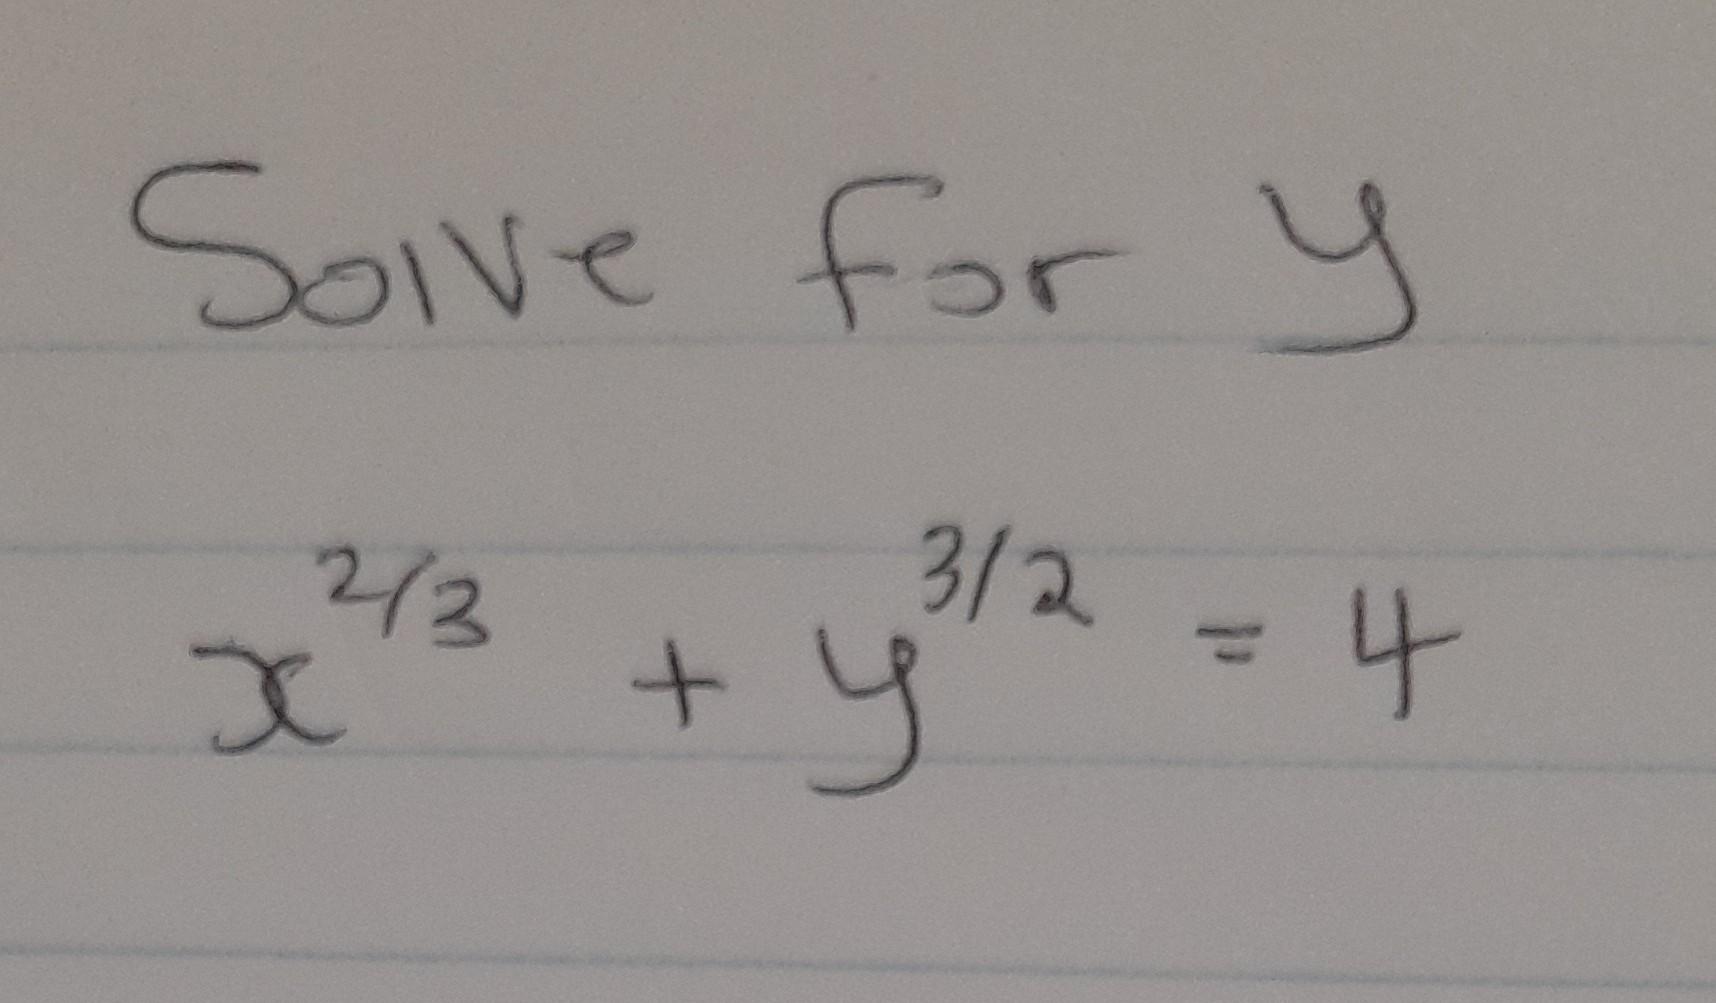 Solve for y
x^{2/3} + y^{3/2} = 4